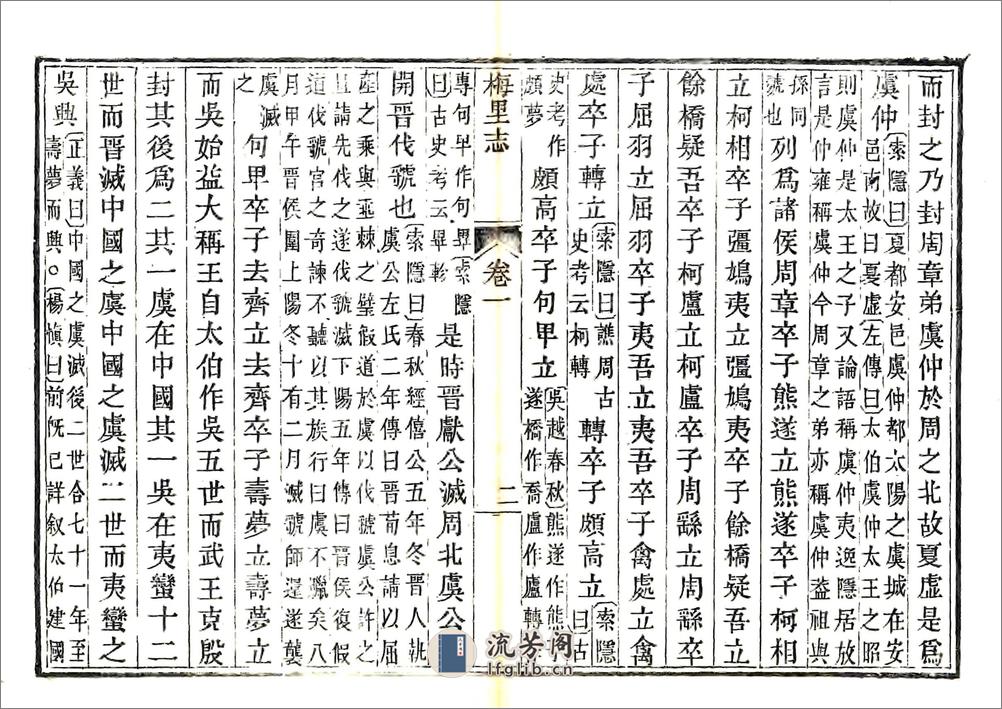 而封之乃封周章弟虞仲於周之北故夏虛是爲
虞仲〔索隱曰〕夏都安邑虞仲都太陽之虞城在安
邑南故曰夏虛〔左傳曰〕太伯虞仲太王之昭
則虞仲是太王之子又論語稱虞仲夷逸隱居放
言是仲雍稱虞仲今周章之弟亦稱虞仲葢祖與
孫同
號也
列爲諸侯周章卒子熊遂立熊遂卒子柯相
立柯相卒子彊鳩夷立彊鳩夷卒子餘橋疑吾立
餘橋疑吾卒子柯盧立柯盧卒子周繇立周繇卒
子屈羽立屈羽卒子夷吾立夷吾卒子禽處立禽
處卒子轉立〔索隱曰〕譙周古
史考云柯轉
轉卒子頗高立〔索隱
曰〕古
史考作
頗夢
頗高卒子句甲立〔吳越春秋〕熊遂作熊
遂橋作喬盧作廬轉
梅里志
卷一
二
專句甲作句畢〔索隱
曰〕古史考云畢軫
是時晉獻公滅周北虞公
開晉伐虢也〔索隱曰〕春秋經僖公五年冬晉人執
虞公左氏二年傳曰晉荀息請以屈
產之乘與垂棘之璧假道於虞以伐虢虞公許之
且請先伐之遂伐虢滅下陽五年傳曰晉侯復假
道伐虢宮之奇諫不聽以其族行曰虞不臘矣八
月甲午晉侯圍上陽冬十有二月滅虢師還遂襲
虞滅
之
句甲卒子去齊立去齊卒子壽夢立壽夢立
而吳始益大稱王自太伯作吳五世而武王克殷
封其後爲二其一虞在中國其一吳在夷蠻十二
世而晉滅中國之虞中國之虞滅二世而夷蠻之
吳興〔正義曰〕中國之虞滅後二世合七十一年至
壽夢而興○〔楊愼曰〕前旣已詳叙太伯建國
流芳阁
lfglib.cn